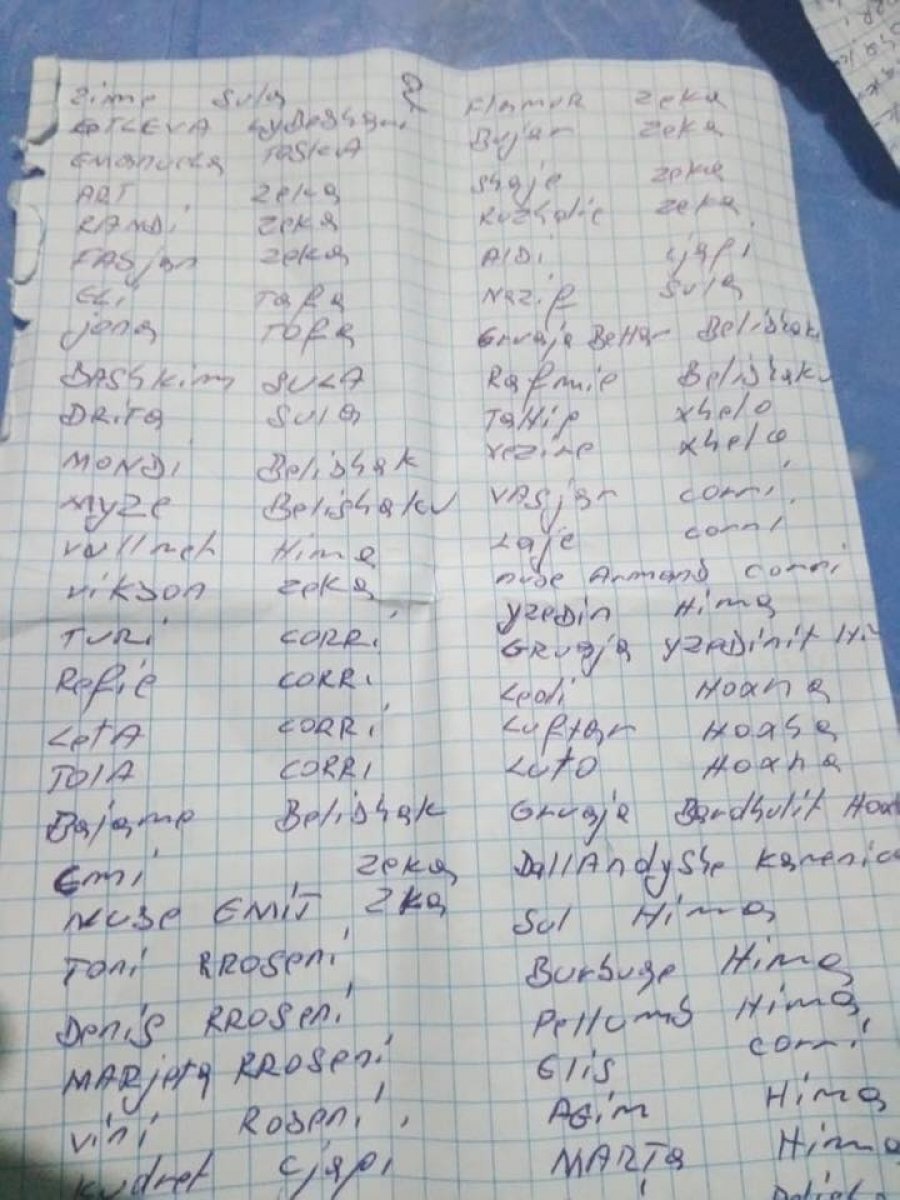 Zime Sula
2
Emanuela
ART Zeka
RANDi Zeka
FASjan Zeka
ELi Tafa
jona Tafa
BAShkim SULA
DRiTa Sula
MONDi Belishak
Myze Belishaku
vullnet Hima
vikson Zeka
TURi CORRi
Refie CORRi
LetA CORRi
TOlA CORRi
Bajame Belishak
Emi Zeka
Nuse EMiT Zka
Toni RROSeni
Denis RROSeni
MARjeta RROSeni
vini ROSeni
kudret Cjapi
Flamur Zeka
Bujar Zeka
Shaje Zeka
Zeka
AlDi Cjapi
Nazif Sula
Gruaja Behar Belishaku
Rafmie Belishaku
TaHip xhelo
xhelo
VASjar Corri
Laje Corri
nuse Armand Corri
Yzedin Hima
GRuaja YzeDinit Hi
Ledi Hoxha
Luftar Hoxha
Luto Hoxha
Gruaja Bardhulit Hoxh
DallAndyshe
Sul Hima
Burbuqe Hima
Pellumb Hima
Elis Corri
AGim Hima
MARTa Hima